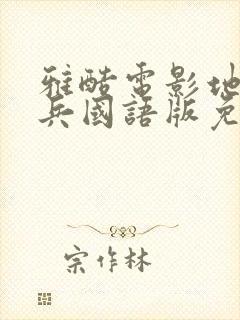 雅酷電影地
兵國語版免
宗作林